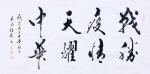 戰勝
疫情
天耀
中華